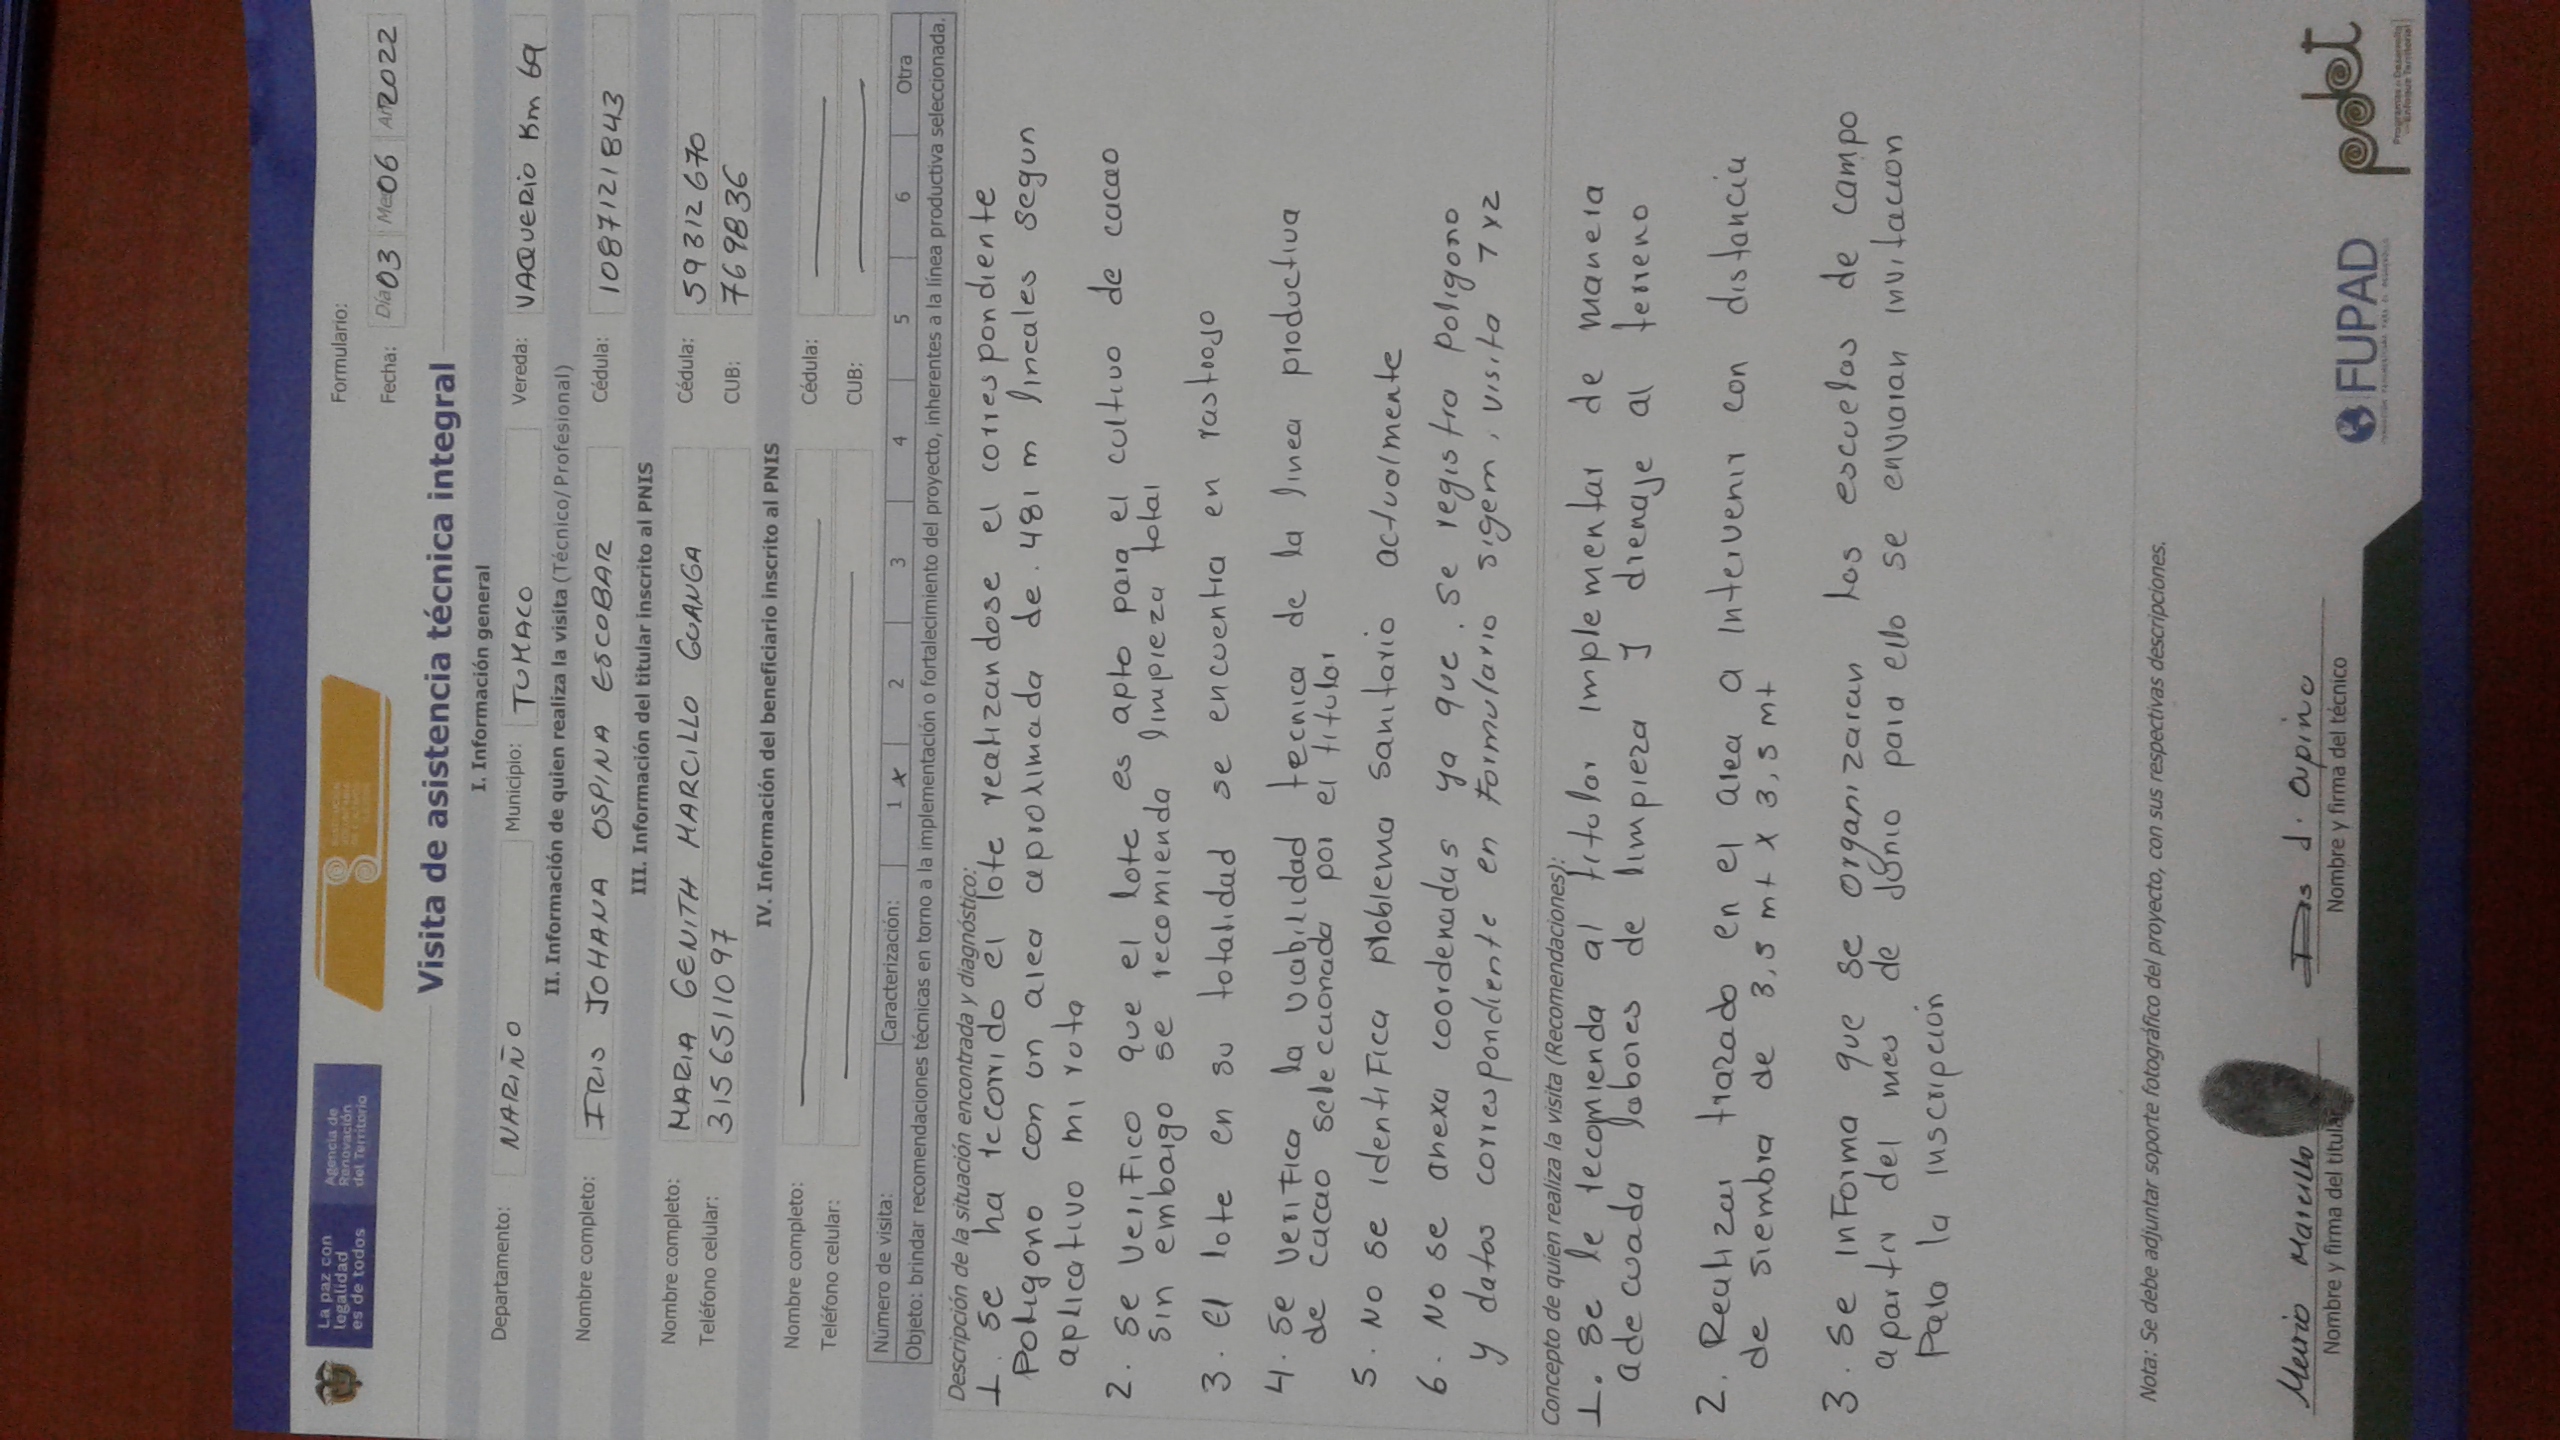 La paz con
legalidad
es de todos
Agencia de
Renovación
del Territorio
Formulario:
Fecha: Día 03 Me 06 Añ 2022
Visita de asistencia técnica integral
I. Información general
Departamento: NARIÑO Municipio: TUMACO Vereda: VAQUERIO Km 69
II. Información de quien realiza la visita (Técnico/Profesional)
Nombre completo: IRIS JOHANA OSPINA ESCOBAR Cédula: 1087121843
III. Información del titular inscrito al PNIS
Nombre completo: MARIA GENITH MARCILLO GUANGA Cédula: 59312670
Teléfono celular: 3156511097 CUB: 769836
IV. Información del beneficiario inscrito al PNIS
Nombre completo: Cédula:
Teléfono celular: CUB:
Número de visita: Caracterización: 1 X 2 3 4 5 6 Otra
Objeto: brindar recomendaciones técnicas en torno a la implementación o fortalecimiento del proyecto, inherentes a la línea productiva seleccionada.
Descripción de la situación encontrada y diagnóstico:
1. Se ha recorrido el lote realizandose el correspondiente
Poligono con un area aproximada de. 481 m lineales segun
aplicativo mi ruta
2. Se Verifico que el lote es apto para el cultivo de cacao
sin embargo se recomienda limpieza total
3. el lote en su totalidad se encuentra en rastrojo
4. Se Verifica la viabilidad tecnica de la linea productiva
de cacao seleccionada por el titular
5. No se identifica problema sanitario actualmente
6. No se anexa coordenadas ya que. se registro poligono
y datos correspondiente en formulario sigem, visita 1 y 2
Concepto de quien realiza la visita (Recomendaciones):
1. Se le recomienda al titular implementar de manera
adecuada labores de limpieza y drenaje al terreno
2. Realizar trazado en el area a intervenir con distancia
de siembra de 3,5 mt x 3,5 mt
3. Se informa que se organizaran las escuelas de campo
apartir del mes de Junio para ello se enviaran invitacion
Para la inscripción
Nota: Se debe adjuntar soporte fotográfico del proyecto, con sus respectivas descripciones.
Maria Marcillo
Nombre y firma del titular
Nombre y firma del técnico
FUPAD
pdet
Programas de Desarrollo
con Enfoque Territorial